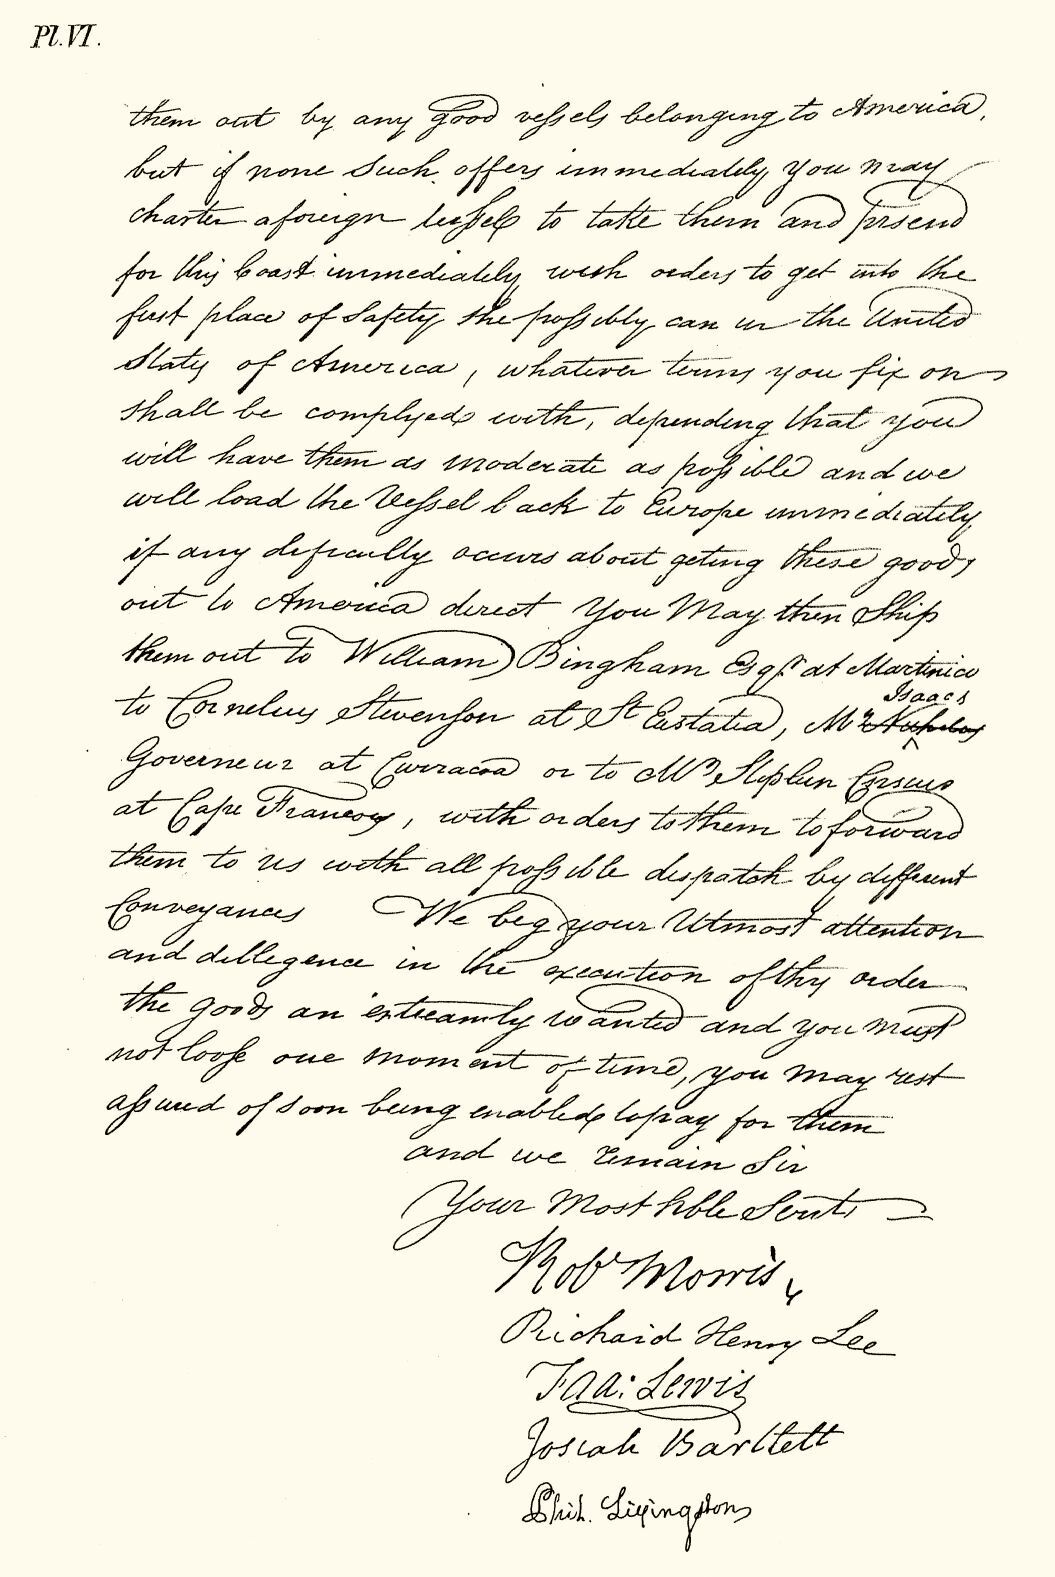 Pl. VI.
them out by any good vessels belonging to America,
but if none Such offers immediately, you may
charter a foreign Vessel to take them and send
for this Coast immediately with orders to get into the
first place of Safety She possibly can in the United
States of America, whatever terms you fix on
Shall be complyed with, depending that you
will have them as moderate as possible and we
will load the Vessel back to Europe immediately,
if any deficulty occurs about geting these goods
out to America direct You May then Ship
them out to William Bingham Esqr. at Martinico
Isaac
to Cornelius Stevenson at St. Eustatia, Mr.
Governeur at Curracoa or to Mr. Stephen Ceronio
at Cape Francoy, with orders to them to forward
them to us with all possible dispatch by different
Conveyances We beg your Utmost attention
and dillegence in the execution of this order
the goods are extreamly wanted and you must
not loose one moment of time, you may rest
assured of soon being enabled to pay for them
and we remain Sir
Your Most hble Servts
Robt Morris
Richard Henry Lee
Fras: Lewis
Josiah Bartlett
Phil. Livingston